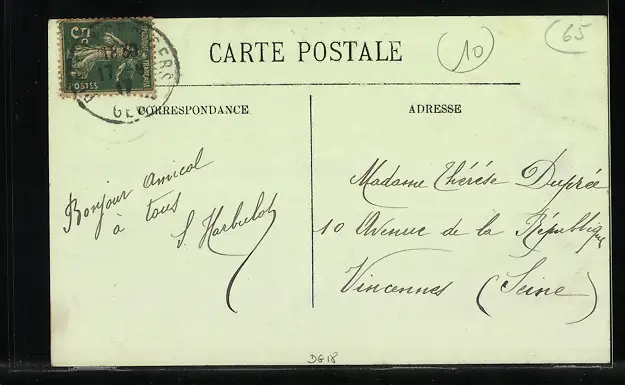 CARTE POSTALE
10
65
5c
POSTES
GE
CORRESPONDANCE
ADRESSE
Bonjour amical
à tous
S. Harbulot
Madame Thérése Duprée
10 Avenue de la République
Vincennes (Seine)
DG18